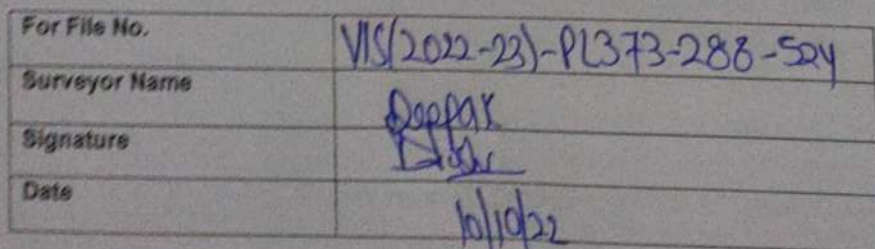 For File No. VIS(2022-23)-PL373-288-524
Surveyor Name Deepak
Signature
Date 10/10/22